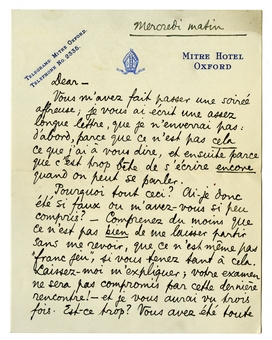 Mercredi matin
TELEGRAMS: MITRE OXFORD.
TELEPHONE No 2335.
MITRE HOTEL
OXFORD
Dear –
Vous m'avez fait passer une soirée
affreuse; je vous ai écrit une assez
longue lettre, que je n'enverrai pas:
d'abord, parce que ce n'est pas cela
que j'ai à vous dire, et ensuite parce
que c'est trop bête de s'écrire encore
quand on peut se parler.
Pourquoi tout ceci? Ai-je donc
été si faux ou m'avez-vous si peu
compris? – Comprenez du moins que
ce n'est pas bien de me laisser partir
sans me revoir, que ce n'est même pas
"franc jeu", si vous tenez tant à cela.
Laissez-moi m'expliquer; votre examen
ne sera pas compromis par cette dernière
rencontre! – et je vous aurai vu trois
fois. Est-ce trop? Vous avez été toute